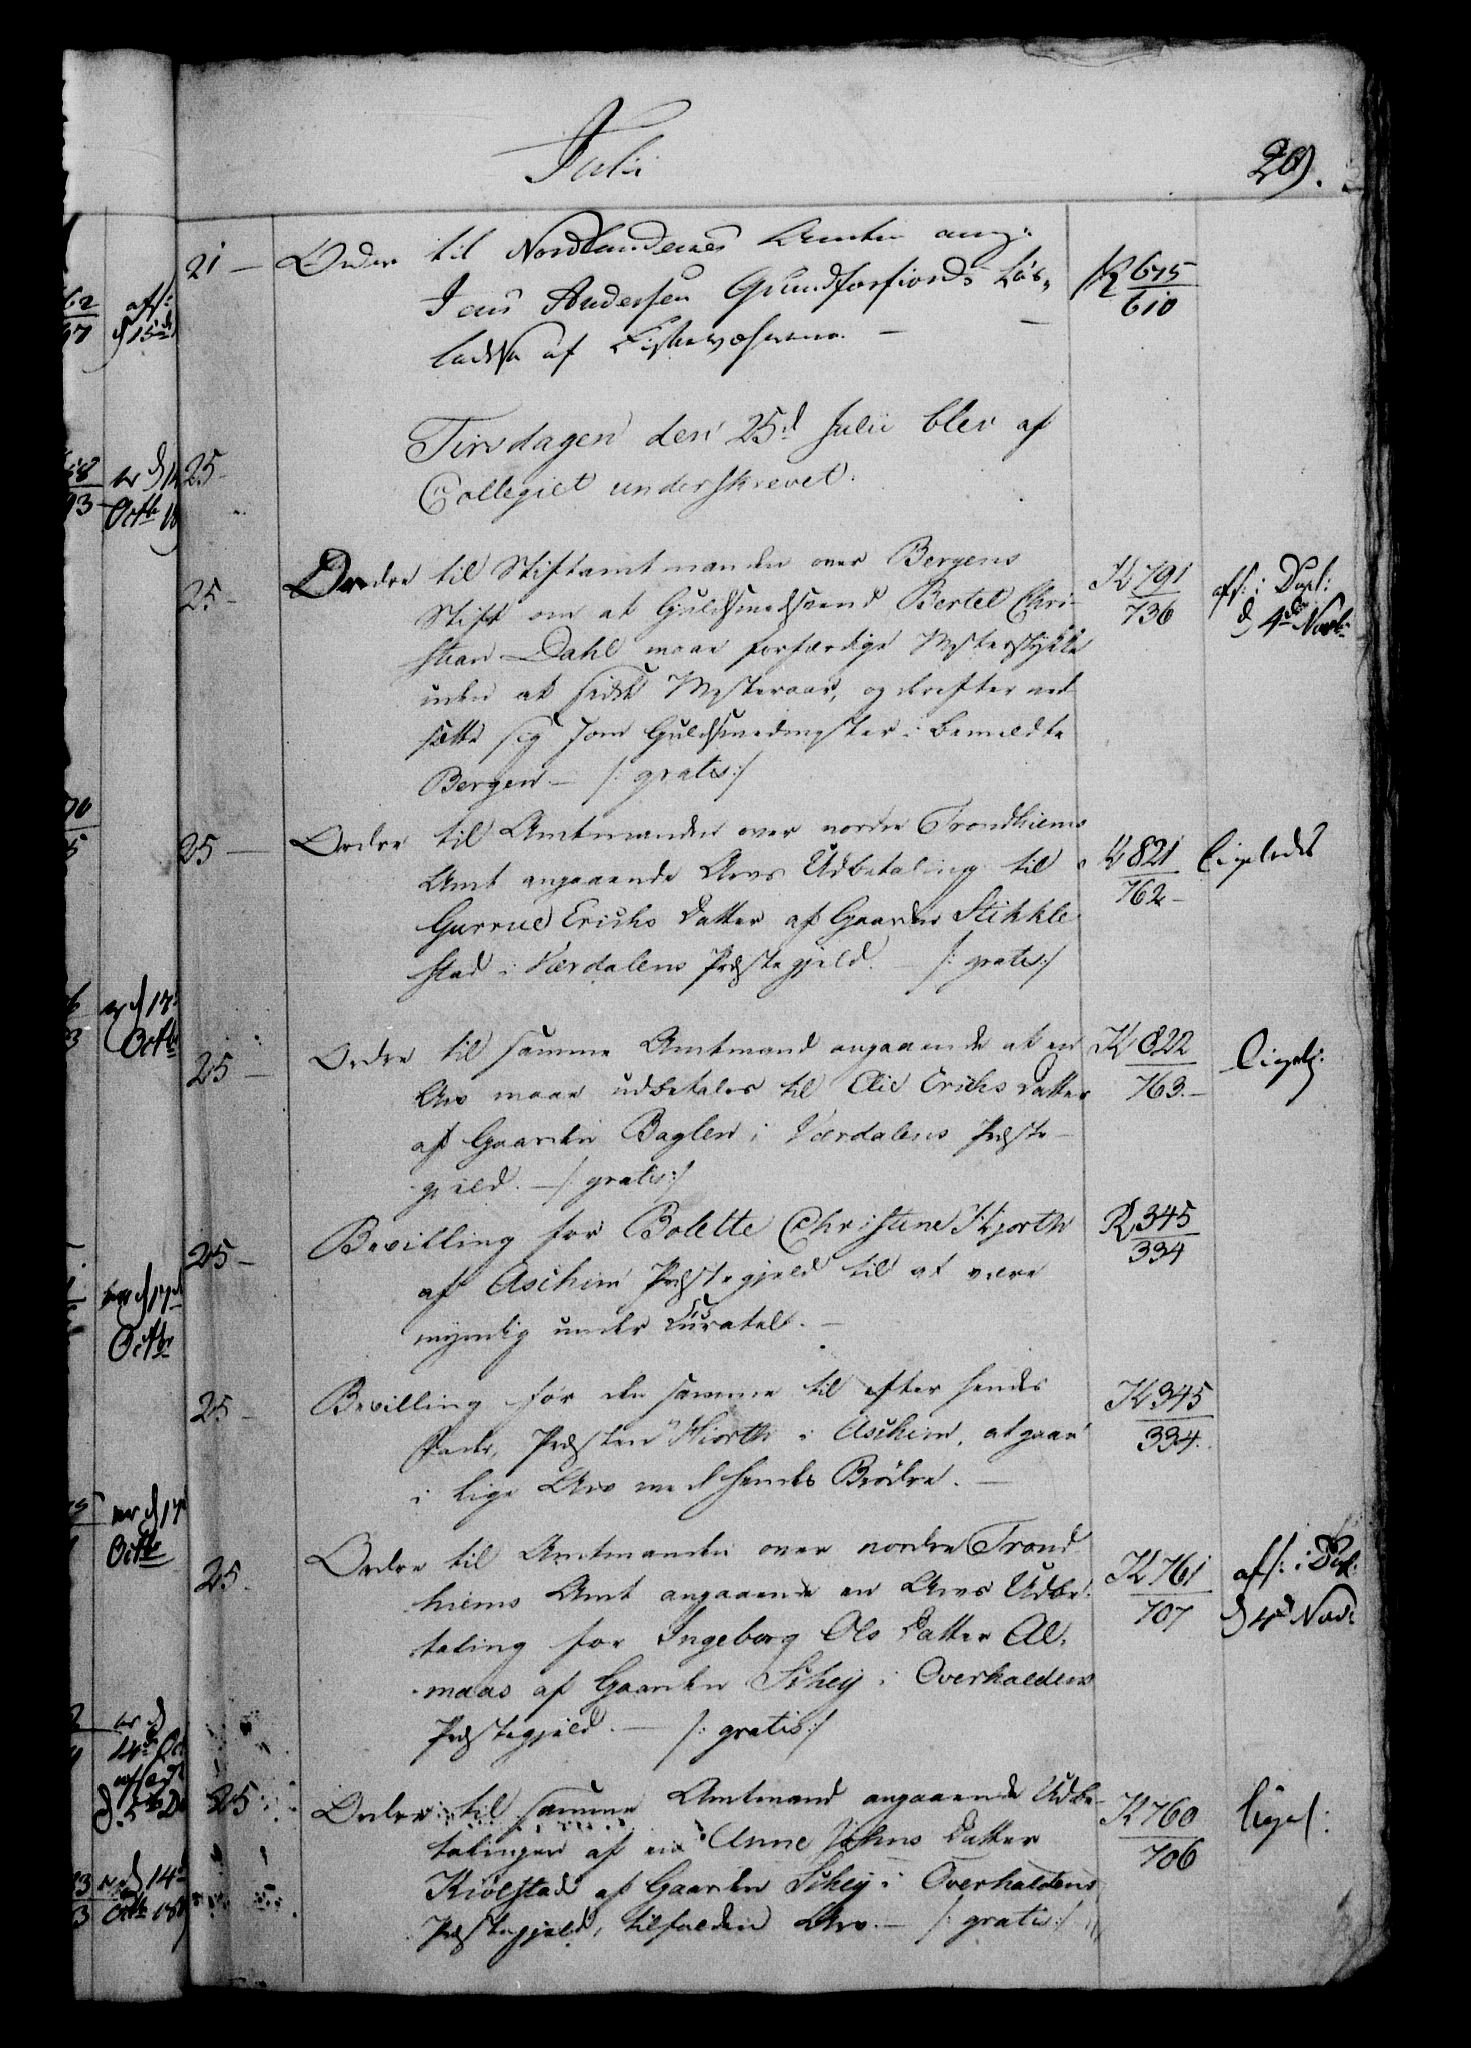 Julii
29.
21 — Ordre til Nordlandenes Amter ang:
Jens Andersen Grundforfiords Løs-
ladelse af Fiskevæsenerne. — —
K 675
610
25 - Tirsdagen den 25d Julii blev af
Collegiet underskrevet.
25 - Ordre til Stiftamtmanden over Bergens
Stift om at Guldsmedsvend Bertel Chri-
stian Dahl maae forfærdige Mesterstykke
uden at sidde Mesteraar, og derefter ned-
sætte sig som Guldsmedmester i bemeldte
Bergen — /: gratis :/
K 791
736
afs: i Dupl:
d 4de Novb:
25 — Ordre til Amtmanden over nordre Trondhiems
Amt angaaende Arvs Udbetaling til
Gurrue Erichs Datter af Gaarden Stikkle-
stad i Værdalens Præstegjeld. /: gratis :/
K 821
762 -
Ligeledes
25 — Ordre til samme Amtmand angaaende at en
Arv maae udbetales til Elie Erichs Datter
af Gaarden Baglen i Værdalens Præste-
gjeld. — /: gratis :/
K 822
763. —
Ligel:
25 - Bevilling for Bolette Christine Hjorth
af Aschim Præstegjeld til at være
myndig under Curatel. —
K 345
334
25 - Bevilling for den samme til efter hendes
Fader, Præsten Hiorth i Aschim, at gaae
i lige Arv med hendes Brødre. —
K 345
334.
25. Ordre til Amtmanden over nordre Trond-
hiems Amt angaaende en Arvs Udbe-
taling for Ingeborg Ols Datter Al-
maas af Gaarden Schey i Overhaldens
Præstegjeld. — /: gratis :/
K 761
707
afs: i Dupl:
d 4d Nov:
25. Ordre til samme Amtmand angaaende Udbe-
talingen af en Anne Johns Datter
Kiølstad af Gaarden Schey i Overhaldens
Præstegjeld, tilfalden Arv. — /: gratis :/
K 760
706
Ligel: